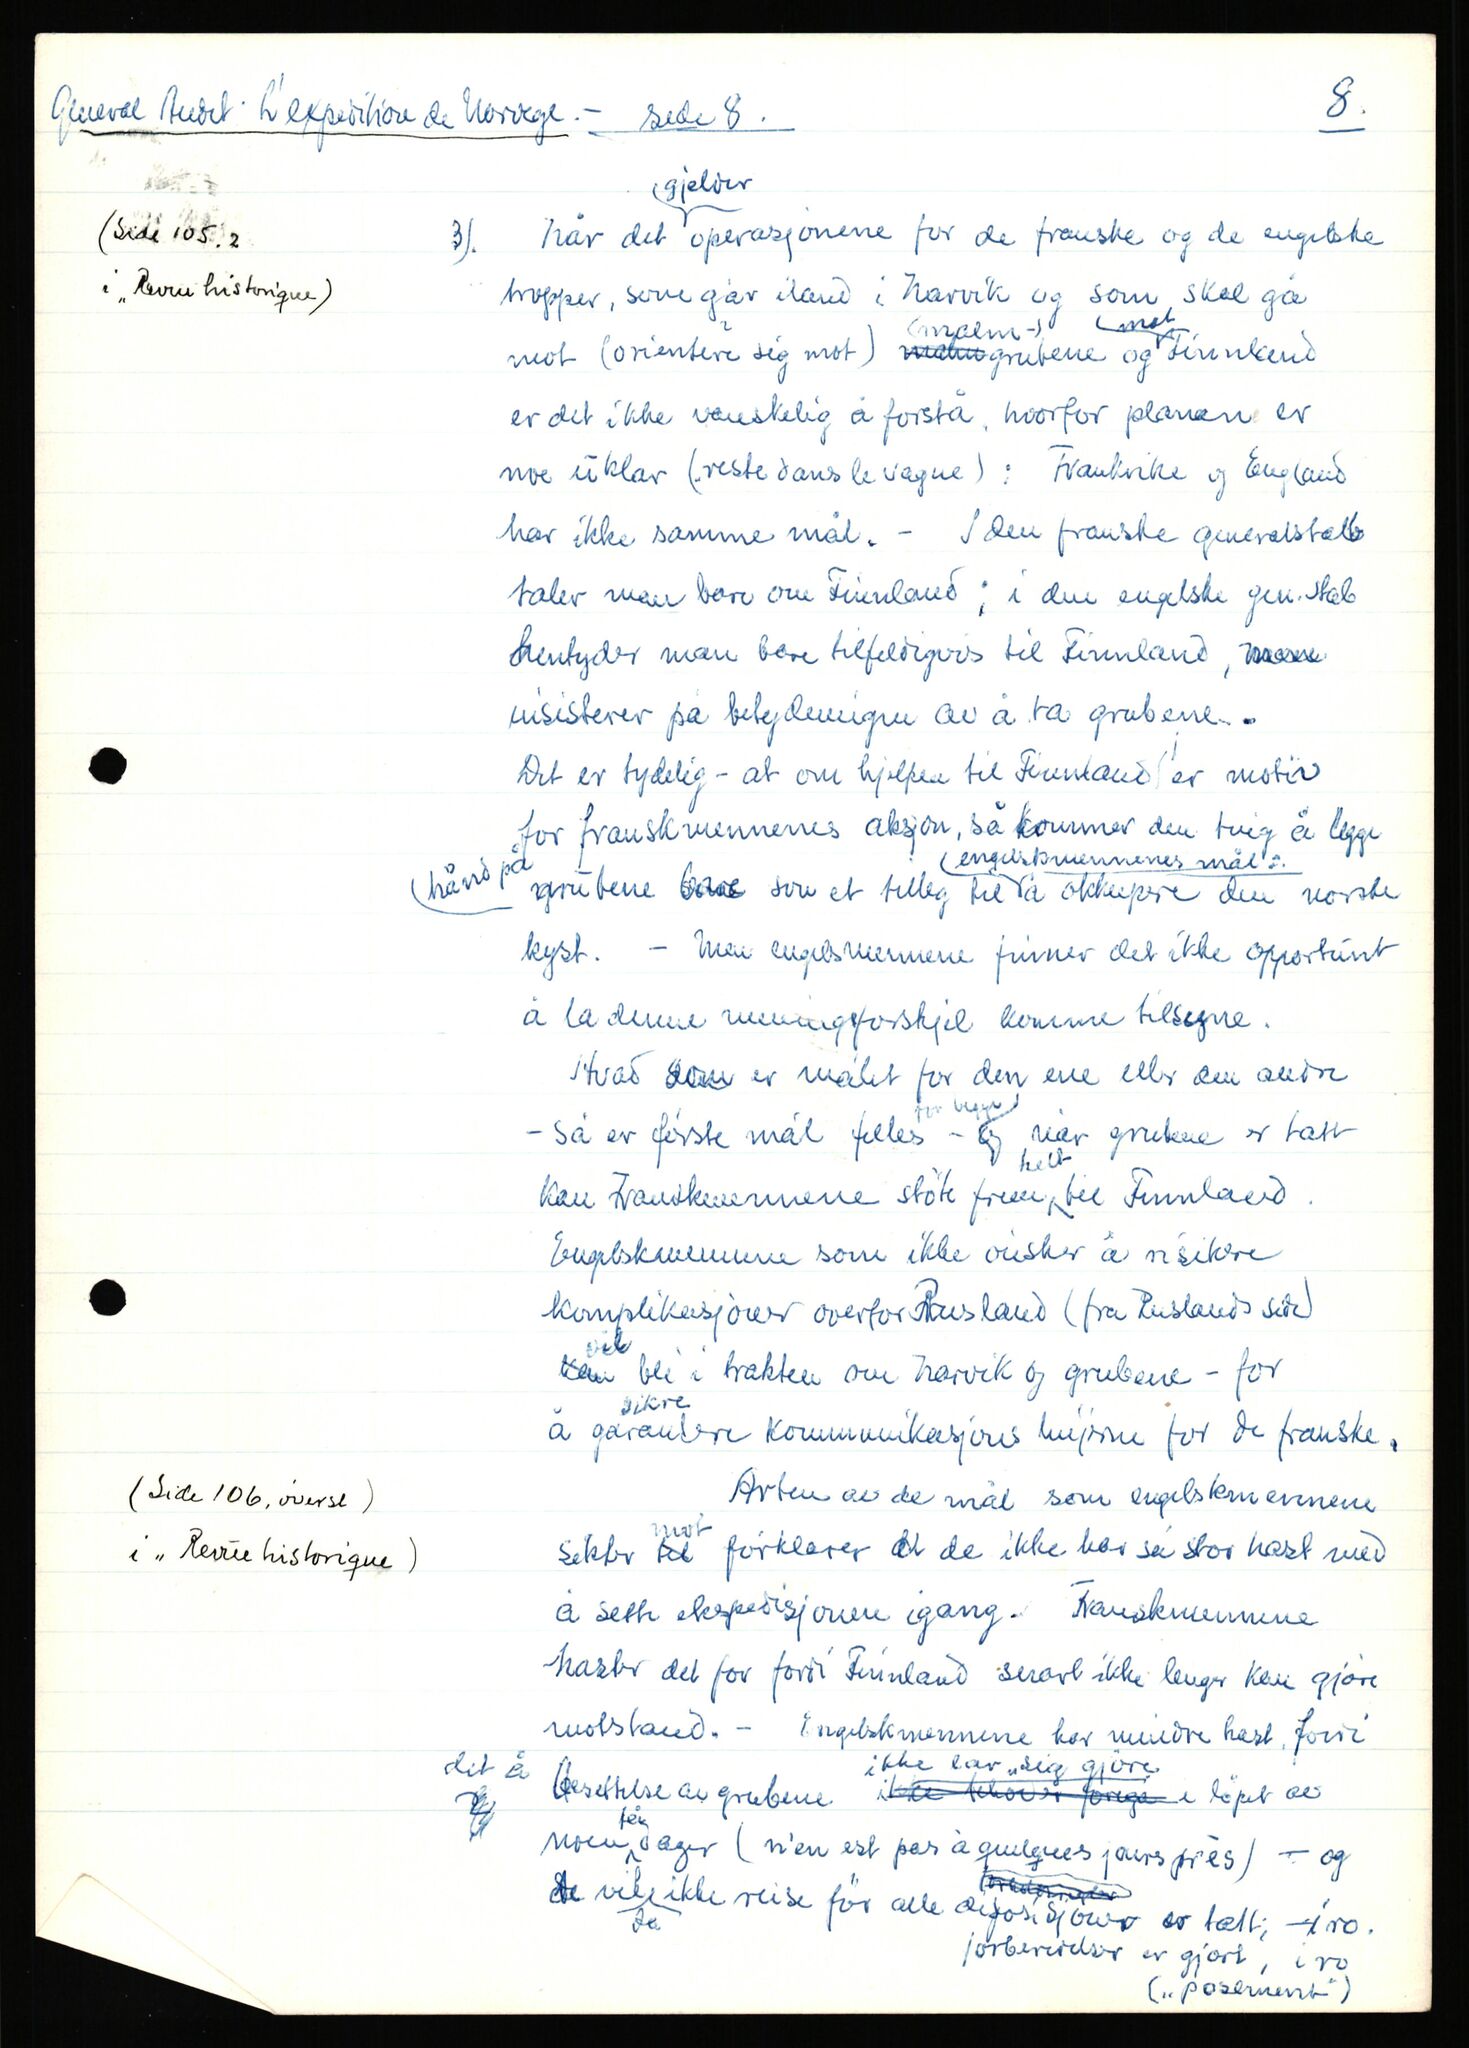 General Audet: L'expedition de Norvege. – side 8.
8.
(Side 105.2
i „Revue historique)
gjelder
3). Når det operasjonene for de franske og de engelske
tropper, som går iland i Narvik og som skal gå
(malm-) (mot
mot (orientere sig mot) malm grubene og Finnland
er det ikke vanskelig å forstå, hvorfor planen er
noe uklar (reste dans le vague): Frankrike og England
har ikke samme mål. – I den franske generalstab
taler man bare om Finnland; i den engelske gen. stab
hentyder man bare tilfeldigvis til Finnland, men
insisterer på betydningen av å ta grubene.
Det er tydelig – at om hjelpen til Finnland er motiv
for franskmennenes aksjon, så kommer den tvig å legge
(engelskmennenes mål:
hånd på
grubene bare som et tillegg til å okkupere den norske
kyst. – Men engelsmennene finner det ikke opportunt
å la denne meningsforskjel komme tilsyne.
Hvad som er målet for den ene eller den andre
for begge
– så er første mål felles – og når grubene er tatt
helt
kan Franskmennene støte frem til Finnland.
Engelskmennene som ikke ønsker å risikere
komplikasjoner overfor Rusland (fra Ruslands side)
vil
kan bli i trakten om Narvik og grubene – for
sikre
å garantere kommunikasjons linjerne for de franske.
(Side 106, øverst)
i „Revue historique)
Arten av de mål som engelskmennene
mot
sikter til forklarer at de ikke har så stor hast med
å sette ekspedisjonen igang. Franskmennene
haster det for fordi Finnland snart ikke lenger kan gjøre
motstand. – Engelskmennene har mindre hast, fordi
det å ikke lar „sig gjøre
besettelse av grubene ikke behøver foregå i løpet av
få
noen dager (n'en est pas à quelques jours près) – og
de vil ikke reise før alle disposisjoner er tatt; – i ro.
de
forberedelser er gjort, i ro
(„posement")